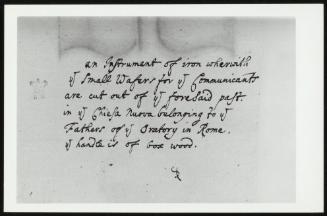 an Instrument of iron wherwith
yͤ Small Wafers for yͤ Communicants
are cut out of yͤ foresaid past.
in yͤ Chiesa Nuova belonging to yͤ
Fathers of yͤ Oratory in Rome.
yͤ handle is of box wood.